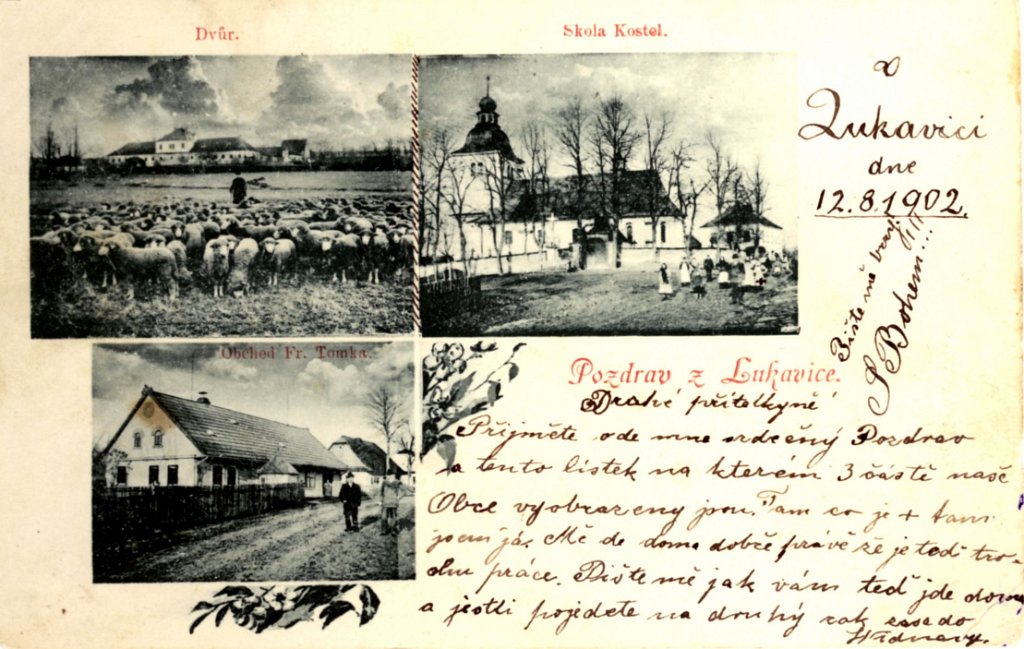 Dvůr.
Skola Kostel.
v
Lukavici
dne
12.8.1902.
Pište mě brzy
S Bohem!!!!
Obchod Fr. Tomka.
Pozdrav z Lukavice.
Drahé přítelkyně
Přijměte ode mne srdečný Pozdrav
a tento lístek na kterém 3 částě naše
Obce vyobrazeny jsou. Tam co je + tam
jsem já. Mě de doma dobře právě že je teď tro-
chu práce. Pište mě jak vám teď jde doma
a jestli pojedete na druhý rok zase do